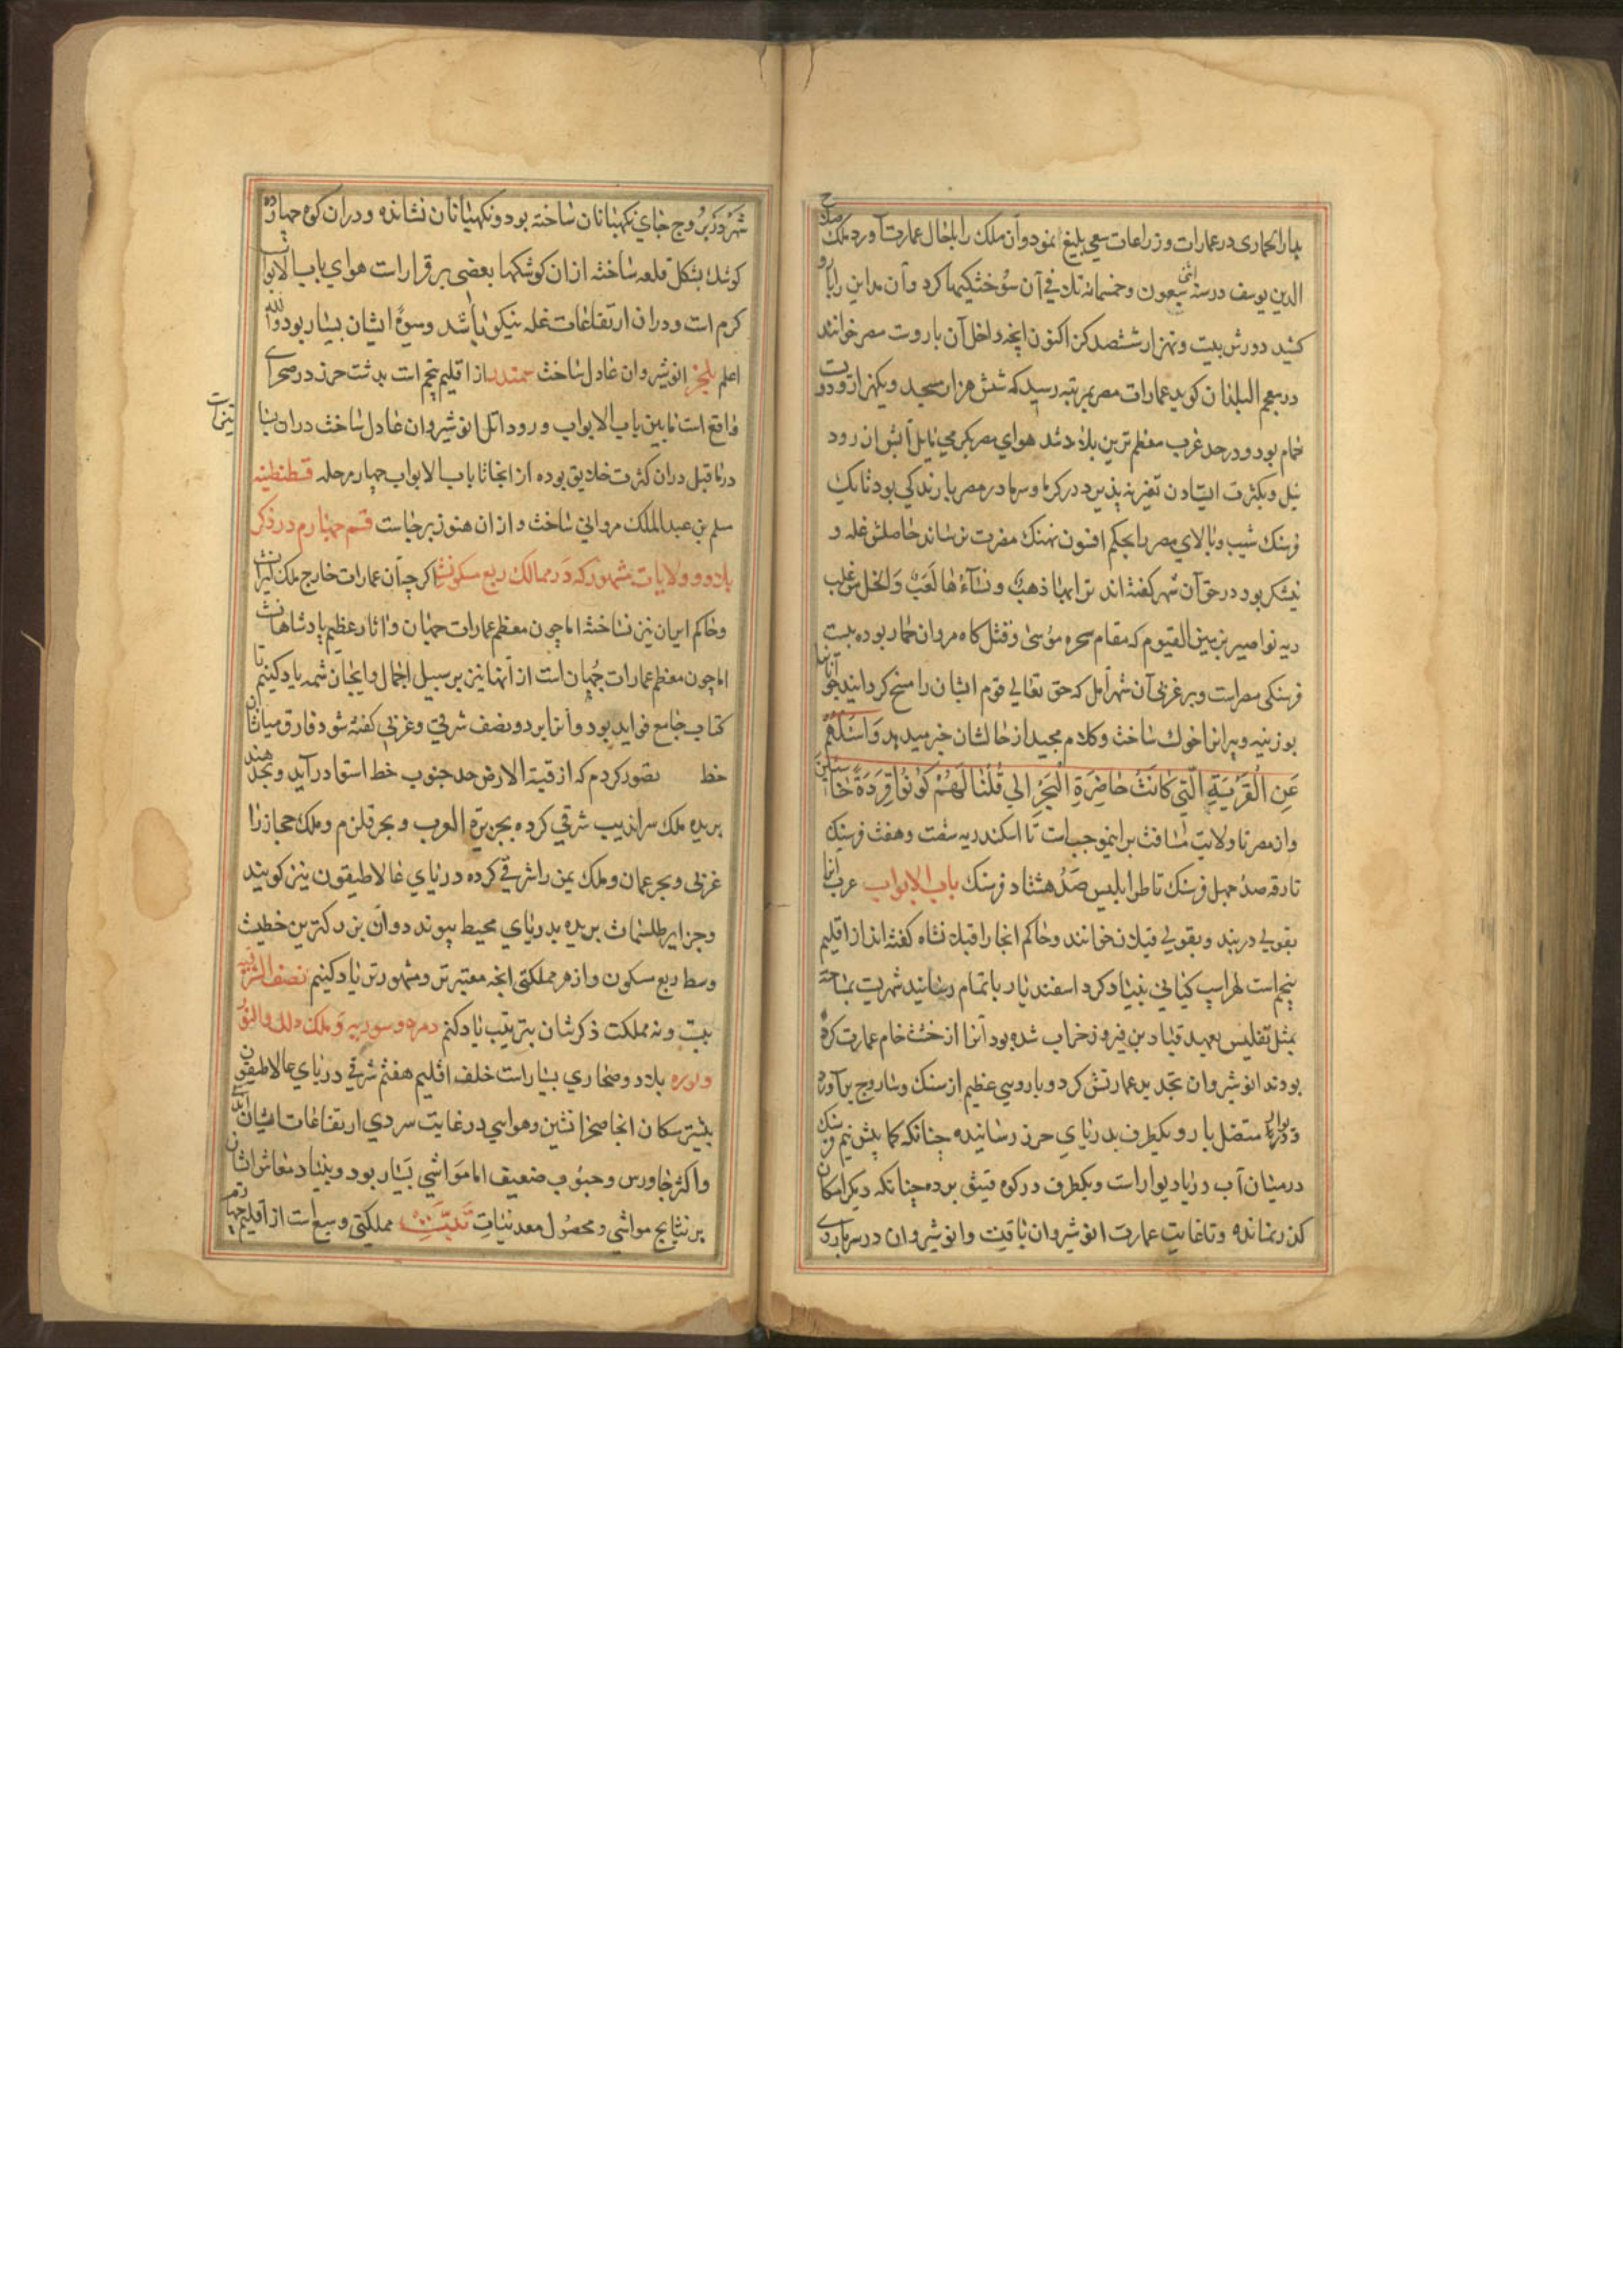 بدار الحماری در عمارات و زراعات سعی بلیغ نمود و آن ملک را باحال عمارت آورد ملک صلاح
الدین یوسف در سنه اثنی سبعون و خمسمائه تلافی آن سوختکیها کرد و آن مداین را بارو
کشید دورش بیست و نهزار ششصد کز اکنون انچه داخل آن باروت مصر خوانند
در معجم البلدان کوید عمارات مصر بمرتبه رسید که شش هزار مسجد و یکهزار و دویست
حمام بود و در حد غرب معظم ترین بلاد شد هوای مصر بکرمی مایل آبش از رود
نیل و بکثرت ایستادن تغیر نپذیرد در کرما و سرما در مصر بارندکی بود تا یک
فرسنک شیب و بالای مصر بحکم افسون نهنک مضرت نرساند حاصلش غله و
نیشکر بود در حق آن شهر کفته اند ترابها ذهب و نساءها لعب و الخل من غلب
دیه بواصیر بزمین القیوم که مقام سحره موسی و قتل کاه مروان حمار بوده بیست
فرسنکی مصر است و بر غربی آن شهر امل که حق تعالی قوم ایشان را مسخ کردانید جوانانرا
بوزینه و پیرانرا خوک ساخت و کلام مجید از حالشان خبر میدهد وَاسْئَلْهُمْ
عَنِ الْقَرْيَةِ الَّتِي كَانَتْ حَاضِرَةَ الْبَحْرِ الی قُلْنَا لَهُمْ كُونُوا قِرَدَةً خَاسِئِينَ
و از مصر تا ولایت مسافت برینموجب است تا اسکندریه سفت و هفت فرسنک
تا رقه صد و چهل فرسنک تا طرابلیس صد هشتاد فرسنک باب الابواب عرب آنرا
بقولی دربند و بقولی فیلان خوانند و حاکم انجا را قیلانشاه کفته اند از اقلیم
پنجم است لهراسپ کیانی بنیاد کرد اسفندیار باتمام رسانید شهریت بمساحة
بمثل تفلیس بعهد قباد بن فیروز خراب شده بود آنرا از خشت خام عمارت کرده
بودند انوشیروان تجدید عمارتش کرد و باروی عظیم از سنک و ساروج برآورد
و دیوارها متصل بارو یکطرف بدریای خرز رسانیده چنانکه کمابیش نیم فرسنک
در میان آب دریا دیوار است و یکطرف در کوه قیتق برده چنانکه دیکر امکان
کذر نمانده و تا غایت عمارت انوشیروان باقیت و انوشیروان در سر باروی
شهر در بروج جای نکهبانان ساخته بود و نکهبانان نشانده و در ان کوه چهارده
کوشک بشکل قلعه ساخته از ان کوشکها بعضی بر قرارات هوای باب الابواب
کرم است و در ان ارتفاعات غله نیکو باشد و میوهٔ ایشان بسیار بود والله
اعلم بلنجر انوشیروان عادل ساخت سمندر از اقلیم پنجم است بدشت خرز در صحرای
واقع است مابین باب الابواب و رود اتل انوشیروان عادل ساخت در ان بساتین
در ماقبل دران کثرت خلایق بوده از انجا تا باب الابواب چهار مرحله قسطنطنیه
سلم بن عبدالملک مروانی ساخت و از ان هنوز برجاست قسم چهارم در ذکر
بلاد و ولایات مشهور که در ممالک ربع مسکونست اکرچه آن عمارات خارج ملک ایرانست
و حاکم ایران نیز نساخته اما چون معظم عمارات جهان و آثار عظیم پادشاهانست
اما چون معظم عمارات جهان است از آنها نیز بر سبیل اجمال و ایجاز شمه یاد کنیم تا
کتاب جامع فواید بود و آنرا بر دو نصف شرقی و غربی کفته شود فارق میان آن
خط تصور کردم که از قبة الارض حد جنوب خط استوا درآید و بحر هند
بریده ملک سراندیب شرقی کرده بجزیرة العرب و بحر قلزم و ملک حجاز را
غربی و بحر عمان و ملک یمن را شرقی کرده دریای غالاطیقون نیز کویند
و جزایر طلسمات بریده بدریای محیط پیوندد و آن بزرکترین خطیست
وسط ربع مسکون و از هر مملکتی انچه معتبرتر و مشهورتر یاد کنیم نصف الشرقیه
بیست و نه مملکت ذکرشان بترتیب یاد کنم
بلاد و صحاری بسیار است خلف اقلیم هفتم شرقی دریای غالاطیقون
بیشتر سکان انجا صحرانشین و هوایی در غایت سردی ارتفاعات ایشان
و اکثر جاورس و حبوب ضعیف اما مواشی بسیار بود و بنیاد معاش ایشان
بر نتایج مواشی و محصول معدنیات تبت مملکتی وسیع است از اقلیم چهارم